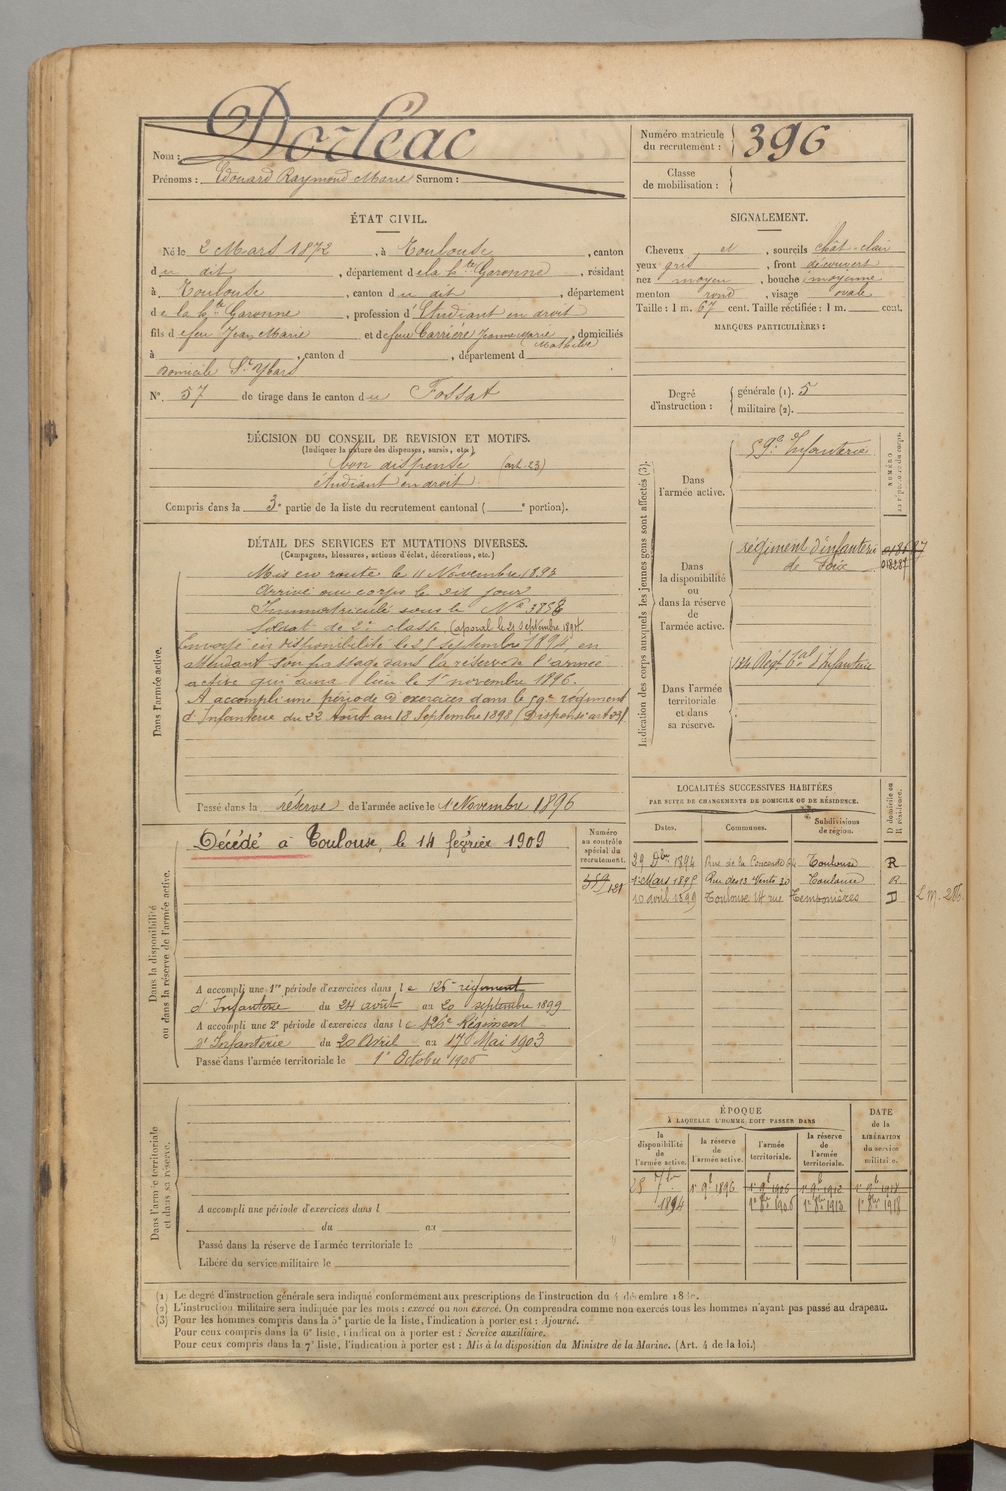 Nom : Dorléac
Prénoms : Edouard Raymond Marie Surnom :
Numéro matricule du recrutement : 396
Classe de mobilisation :
ÉTAT CIVIL.
Né le 2 Mars 1872, à Toulouse, canton
du dit, département de la hte Garonne, résidant
à Toulouse, canton du dit, département
de la hte Garonne, profession d'Etudiant en droit
fils de feu Jean Marie et de feue Carrière Jeanne Marie Mathilde, domiciliés
à , canton d , département d
Domicile St Ybars
N°. 57 de tirage dans le canton du Fossat
SIGNALEMENT.
Cheveux et, sourcils chât-clair
yeux gris, front découvert
nez moyen, bouche moyenne
menton rond, visage ovale
Taille : 1 m. 67 cent. Taille rectifiée : 1 m. cent.
MARQUES PARTICULIÈRES :
Degré d'instruction : générale (1). 5
militaire (2).
DÉCISION DU CONSEIL DE REVISION ET MOTIFS.
(Indiquer la nature des dispenses, sursis, etc.)
bon dispensé (art. 23)
étudiant en droit
Compris dans la 3e partie de la liste du recrutement cantonal ( e portion).
DÉTAIL DES SERVICES ET MUTATIONS DIVERSES.
(Campagnes, blessures, actions d'éclat, décorations, etc.)
Dans l'armée active.
Mis en route le 11 Novembre 1893
Arrivé au corps le dit jour
Immatriculé sous le No 3858
Soldat de 2e classe. Caporal le 21 septembre 1894.
Envoyé en disponibilité le 25 septembre 1894, en
attendant son passage dans la réserve de l'armée
active qui aura lieu le 1er novembre 1896.
A accompli une période d'exercices dans le 59e régiment
d'Infanterie du 22 Août au 18 Septembre 1898 (Dispensé art 23)
Passé dans la réserve de l'armée active le 1 Novembre 1896
Indication des corps auxquels les jeunes gens sont affectés (3).
Dans l'armée active.
59e d'Infanterie
NUMÉRO
Dans la disponibilité ou dans la réserve de l'armée active.
régiment d'infanterie
de Foix
018287
Dans l'armée territoriale et dans sa réserve.
134 Régt tal d'Infanterie
LOCALITÉS SUCCESSIVES HABITÉES
PAR SUITE DE CHANGEMENTS DE DOMICILE OU DE RÉSIDENCE.
Dates. Communes. Subdivisions de région. D domicile ou R résidence.
29 Dbre 1894 Rue de la Concorde 64 Toulouse R
1er Mars 1895 Rue des 13 Vents 20 Toulouse R
10 avril 1899 Toulouse 14 rue Temponières D
Dans la disponibilité ou dans la réserve de l'armée active.
Numéro au contrôle spécial du recrutement.
Décédé à Toulouse, le 14 février 1909
A accompli une 1re période d'exercices dans le 126e régiment
d'Infanterie du 24 août au 20 septembre 1899
A accompli une 2e période d'exercices dans le 126e Régiment
d'Infanterie du 20 Avril au 17 Mai 1903
Passé dans l'armée territoriale le 1er Octobre 1906
Dans l'armée territoriale et dans sa réserve.
A accompli une période d'exercices dans l
du au
Passé dans la réserve de l'armée territoriale le
Libéré du service militaire le
ÉPOQUE
À LAQUELLE L'HOMME DOIT PASSER DANS
DATE de la LIBÉRATION du service militaire.
la disponibilité de l'armée active. la réserve de l'armée active. l'armée territoriale. la réserve de l'armée territoriale.
25 7bre 1894 1er 9bre 1896 1er 9bre 1906 1er 9bre 1912 1er 9bre 1918
1er 8bre 1906 1er 8bre 1918
(1) Le degré d'instruction générale sera indiqué conformément aux prescriptions de l'instruction du 4 décembre
(2) L'instruction militaire sera indiquée par les mots : exercé ou non exercé. On comprendra comme non exercés tous les hommes n'ayant pas passé au drapeau.
(3) Pour les hommes compris dans la 5e partie de la liste, l'indication à porter est : Ajourné.
Pour ceux compris dans la 6e liste, l'indication à porter est : Service auxiliaire.
Pour ceux compris dans la 7e liste, l'indication à porter est : Mis à la disposition du Ministre de la Marine. (Art. 4 de la loi.)